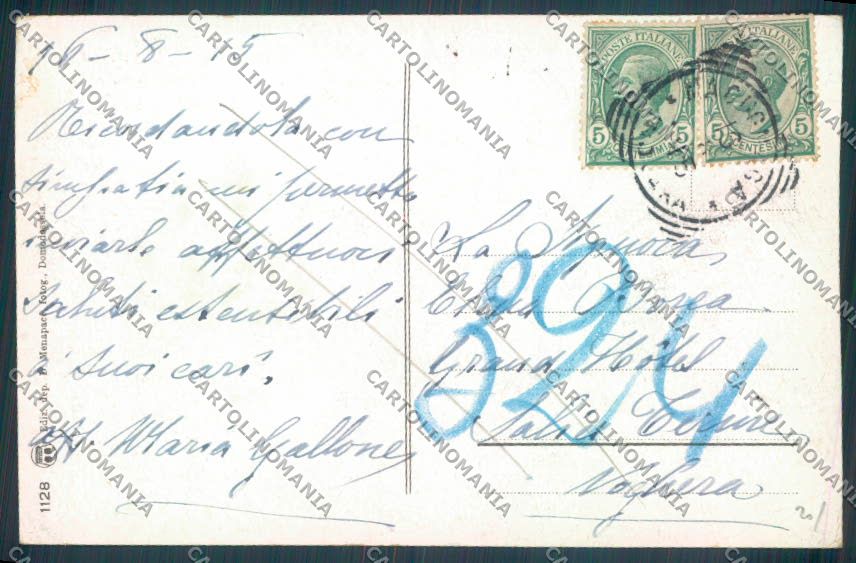 16-8-15
Ricordandola con
simpatia mi permetto
inviarle affettuosi
saluti estensibili
i suoi cari.
Maria Gallone
1128
Ediz. dep. Menapace, fotog., Domodossola.
POSTE ITALIANE
5 5
CENTESIMI
5 5
CENTESIMI
La Signora
Grand Hôtel
Salice Terme
Voghera
824
CARTOLINOMANIA